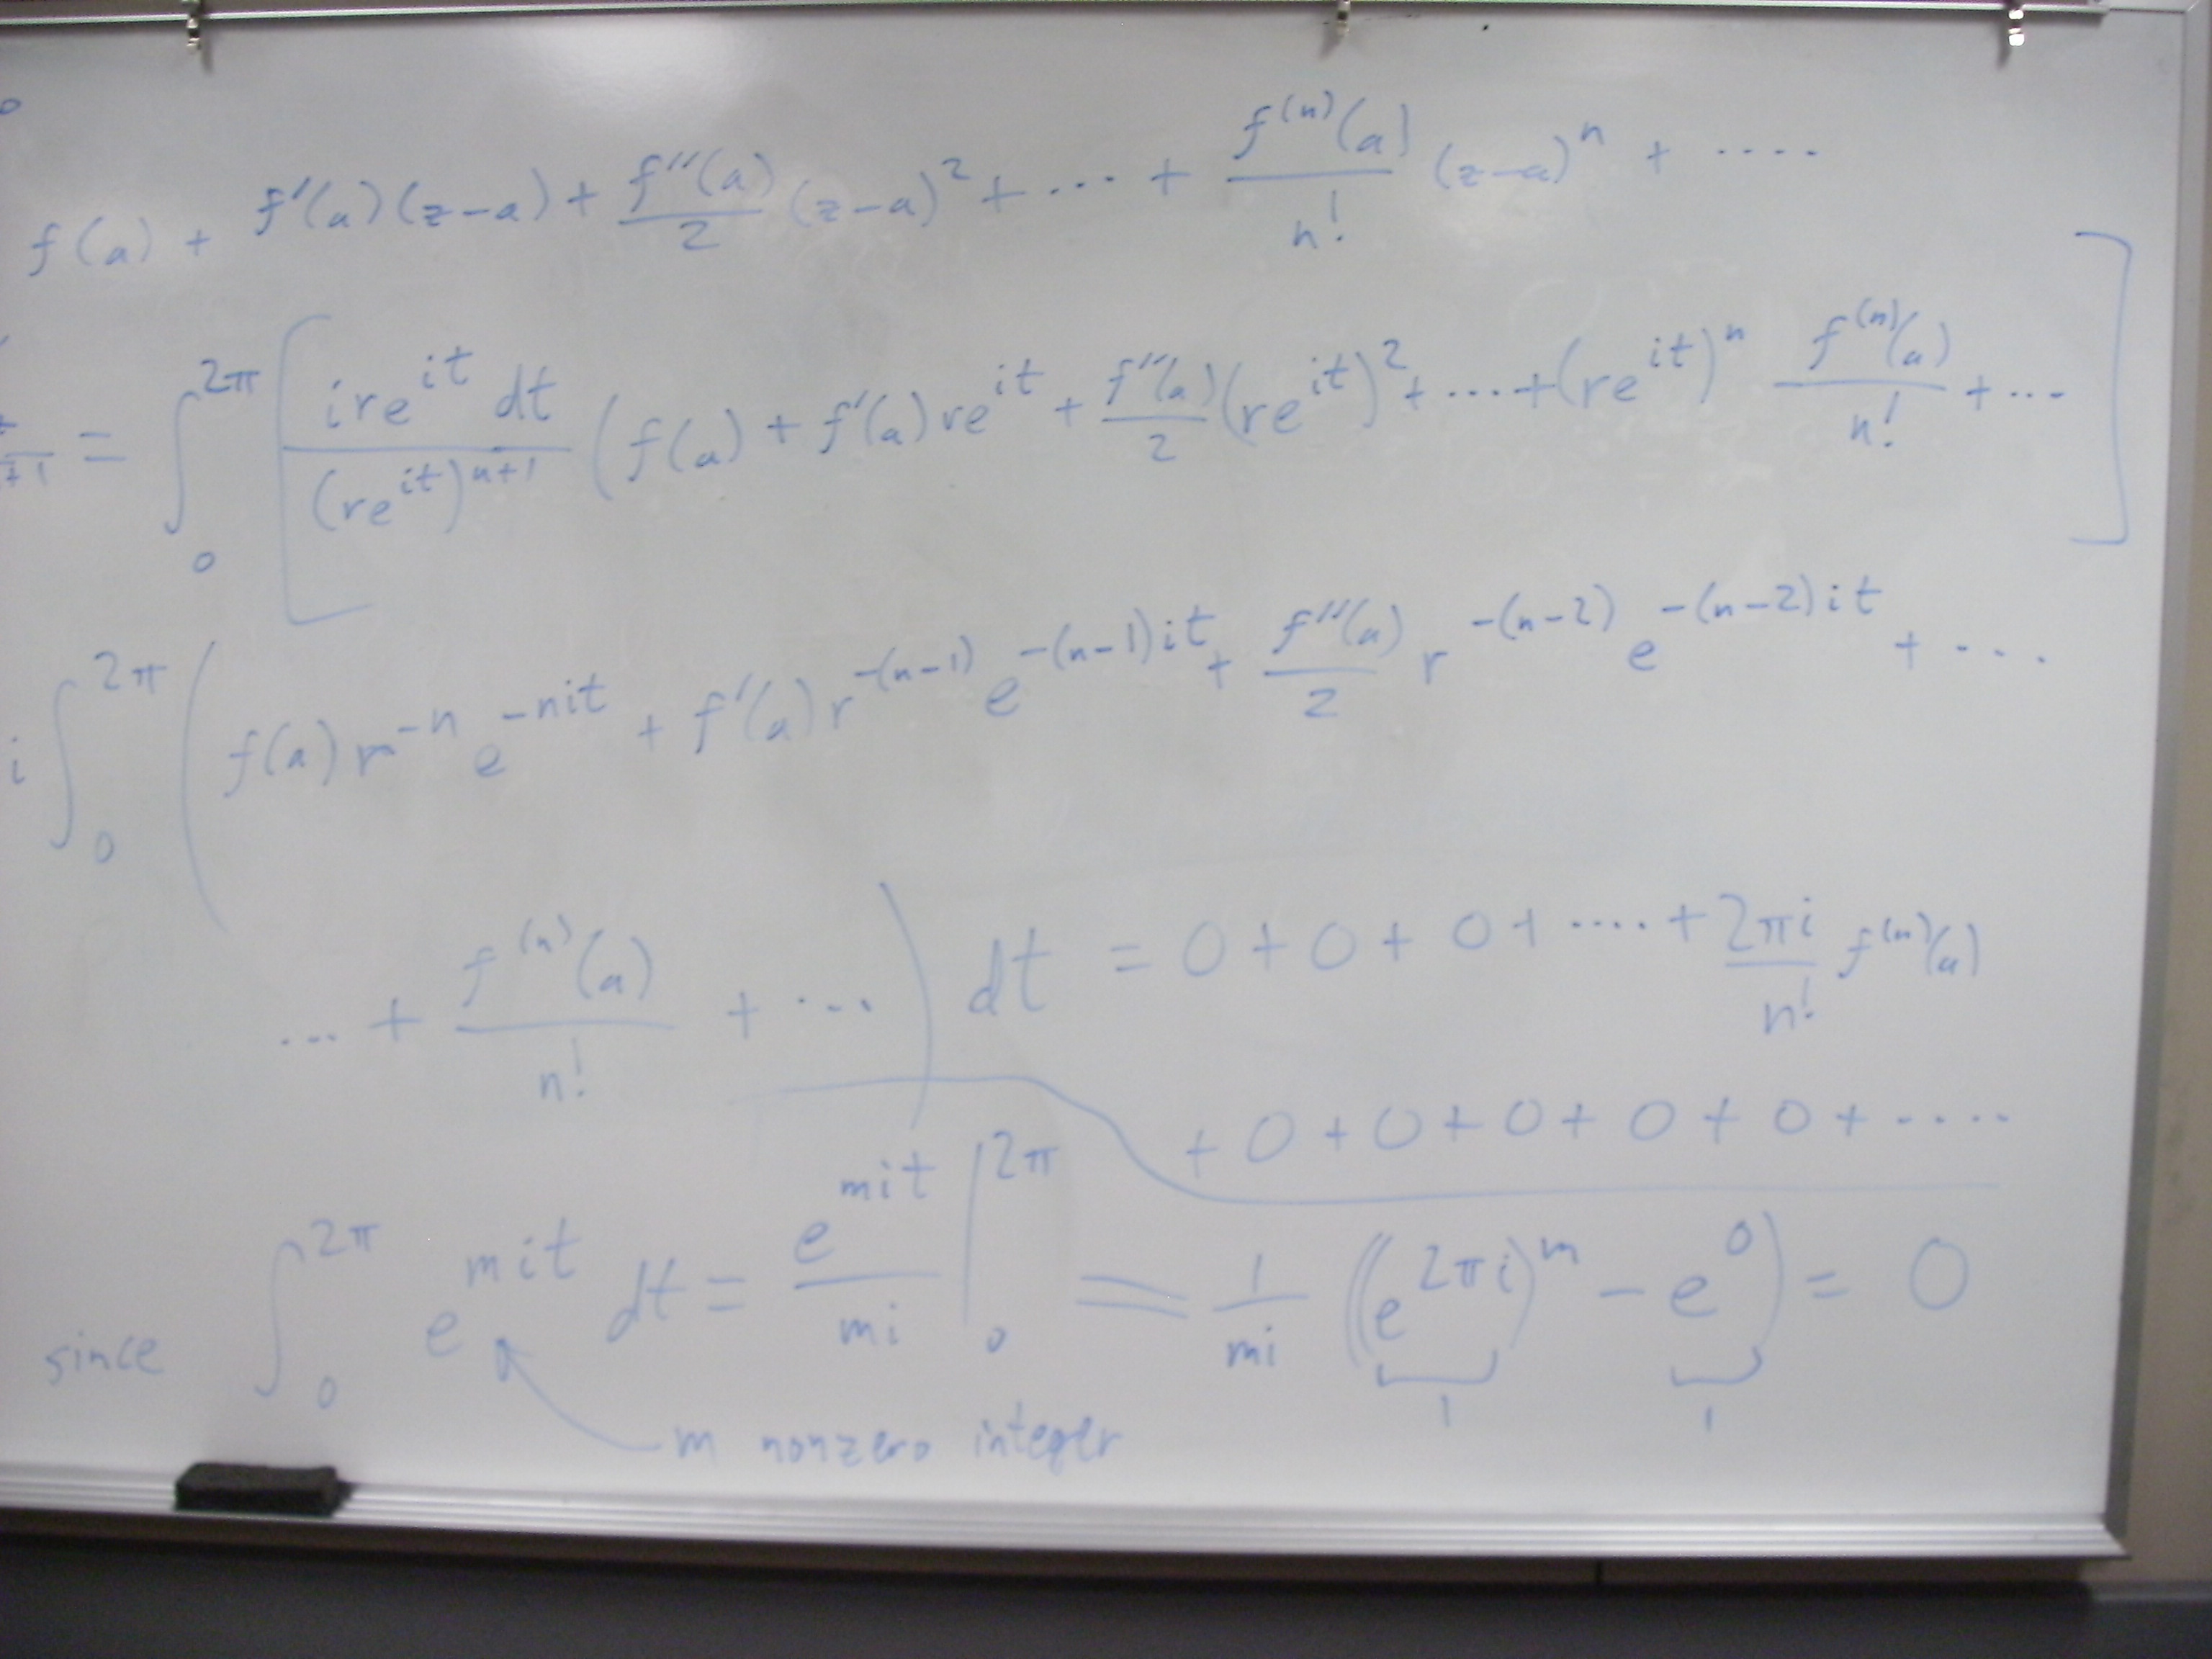 f(a) + f'(a)(z-a) + f''(a)/2 (z-a)^2 + ... + f^(n)(a)/n! (z-a)^n + ....
+1 = ∫_0^2π [ i r e^it dt / (r e^it)^n+1 ( f(a) + f'(a) r e^it + f''(a)/2 (r e^it)^2 + ... + (r e^it)^n f^(n)(a)/n! + ... ]
i ∫_0^2π ( f(a) r^-n e^-nit + f'(a) r^-(n-1) e^-(n-1)it + f''(a)/2 r^-(n-2) e^-(n-2)it + ....
... + f^(n)(a)/n! + ... ) dt = 0 + 0 + 0 + .... + 2πi/n! f^(n)(a)
+ 0 + 0 + 0 + 0 + 0 + ....
since ∫_0^2π e^mit dt = e^mit/mi |_0^2π = 1/mi ((e^2πi)^m - e^0) = 0
1 1
m nonzero integer